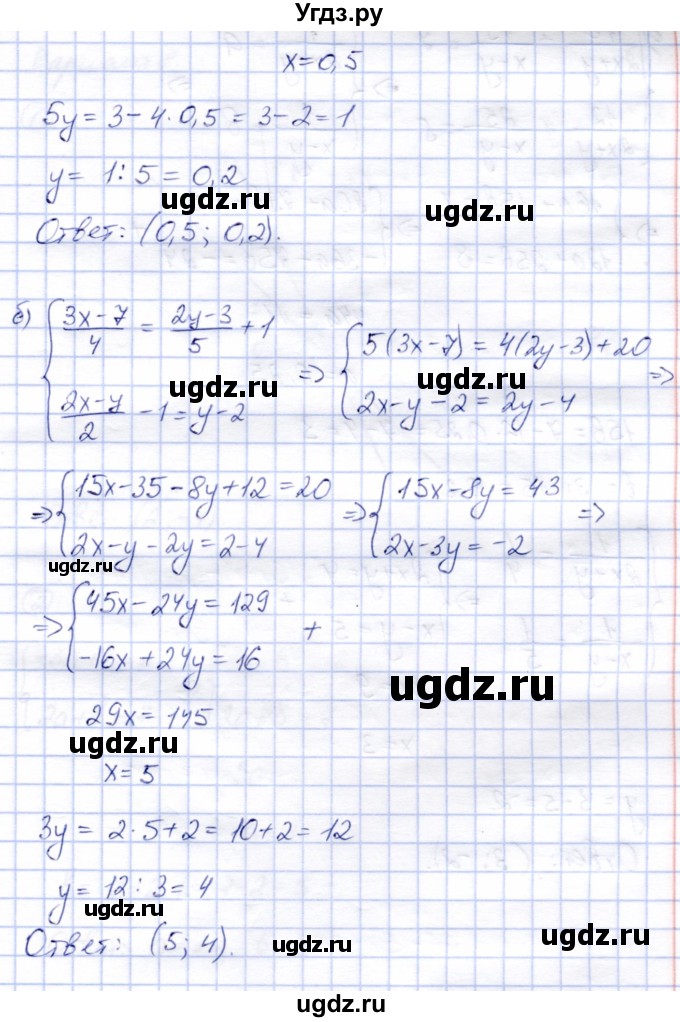 Угдз.ру
x = 0,5
5y = 3 - 4 · 0,5 = 3 - 2 = 1
y = 1 : 5 = 0,2
ugdz.ru
ugdz.ru
Ответ: (0,5; 0,2).
б) { (3x-7)/4 = (2y-3)/5 + 1 ; (2x-y)/2 - 1 = y - 2 => { 5(3x-7) = 4(2y-3) + 20 ; 2x - y - 2 = 2y - 4 =>
ugdz.ru
ugdz.ru
=> { 15x - 35 - 8y + 12 = 20 ; 2x - y - 2y = 2 - 4 => { 15x - 8y = 43 ; 2x - 3y = -2 =>
ugdz.ru
ugdz.ru
=> { 45x - 24y = 129 ; -16x + 24y = 16 +
ugdz.ru
29x = 145
ugdz.ru
x = 5
3y = 2 · 5 + 2 = 10 + 2 = 12
y = 12 : 3 = 4
ugdz.ru
Ответ: (5; 4).
ugdz.ru
ugdz.ru
ugdz.ru